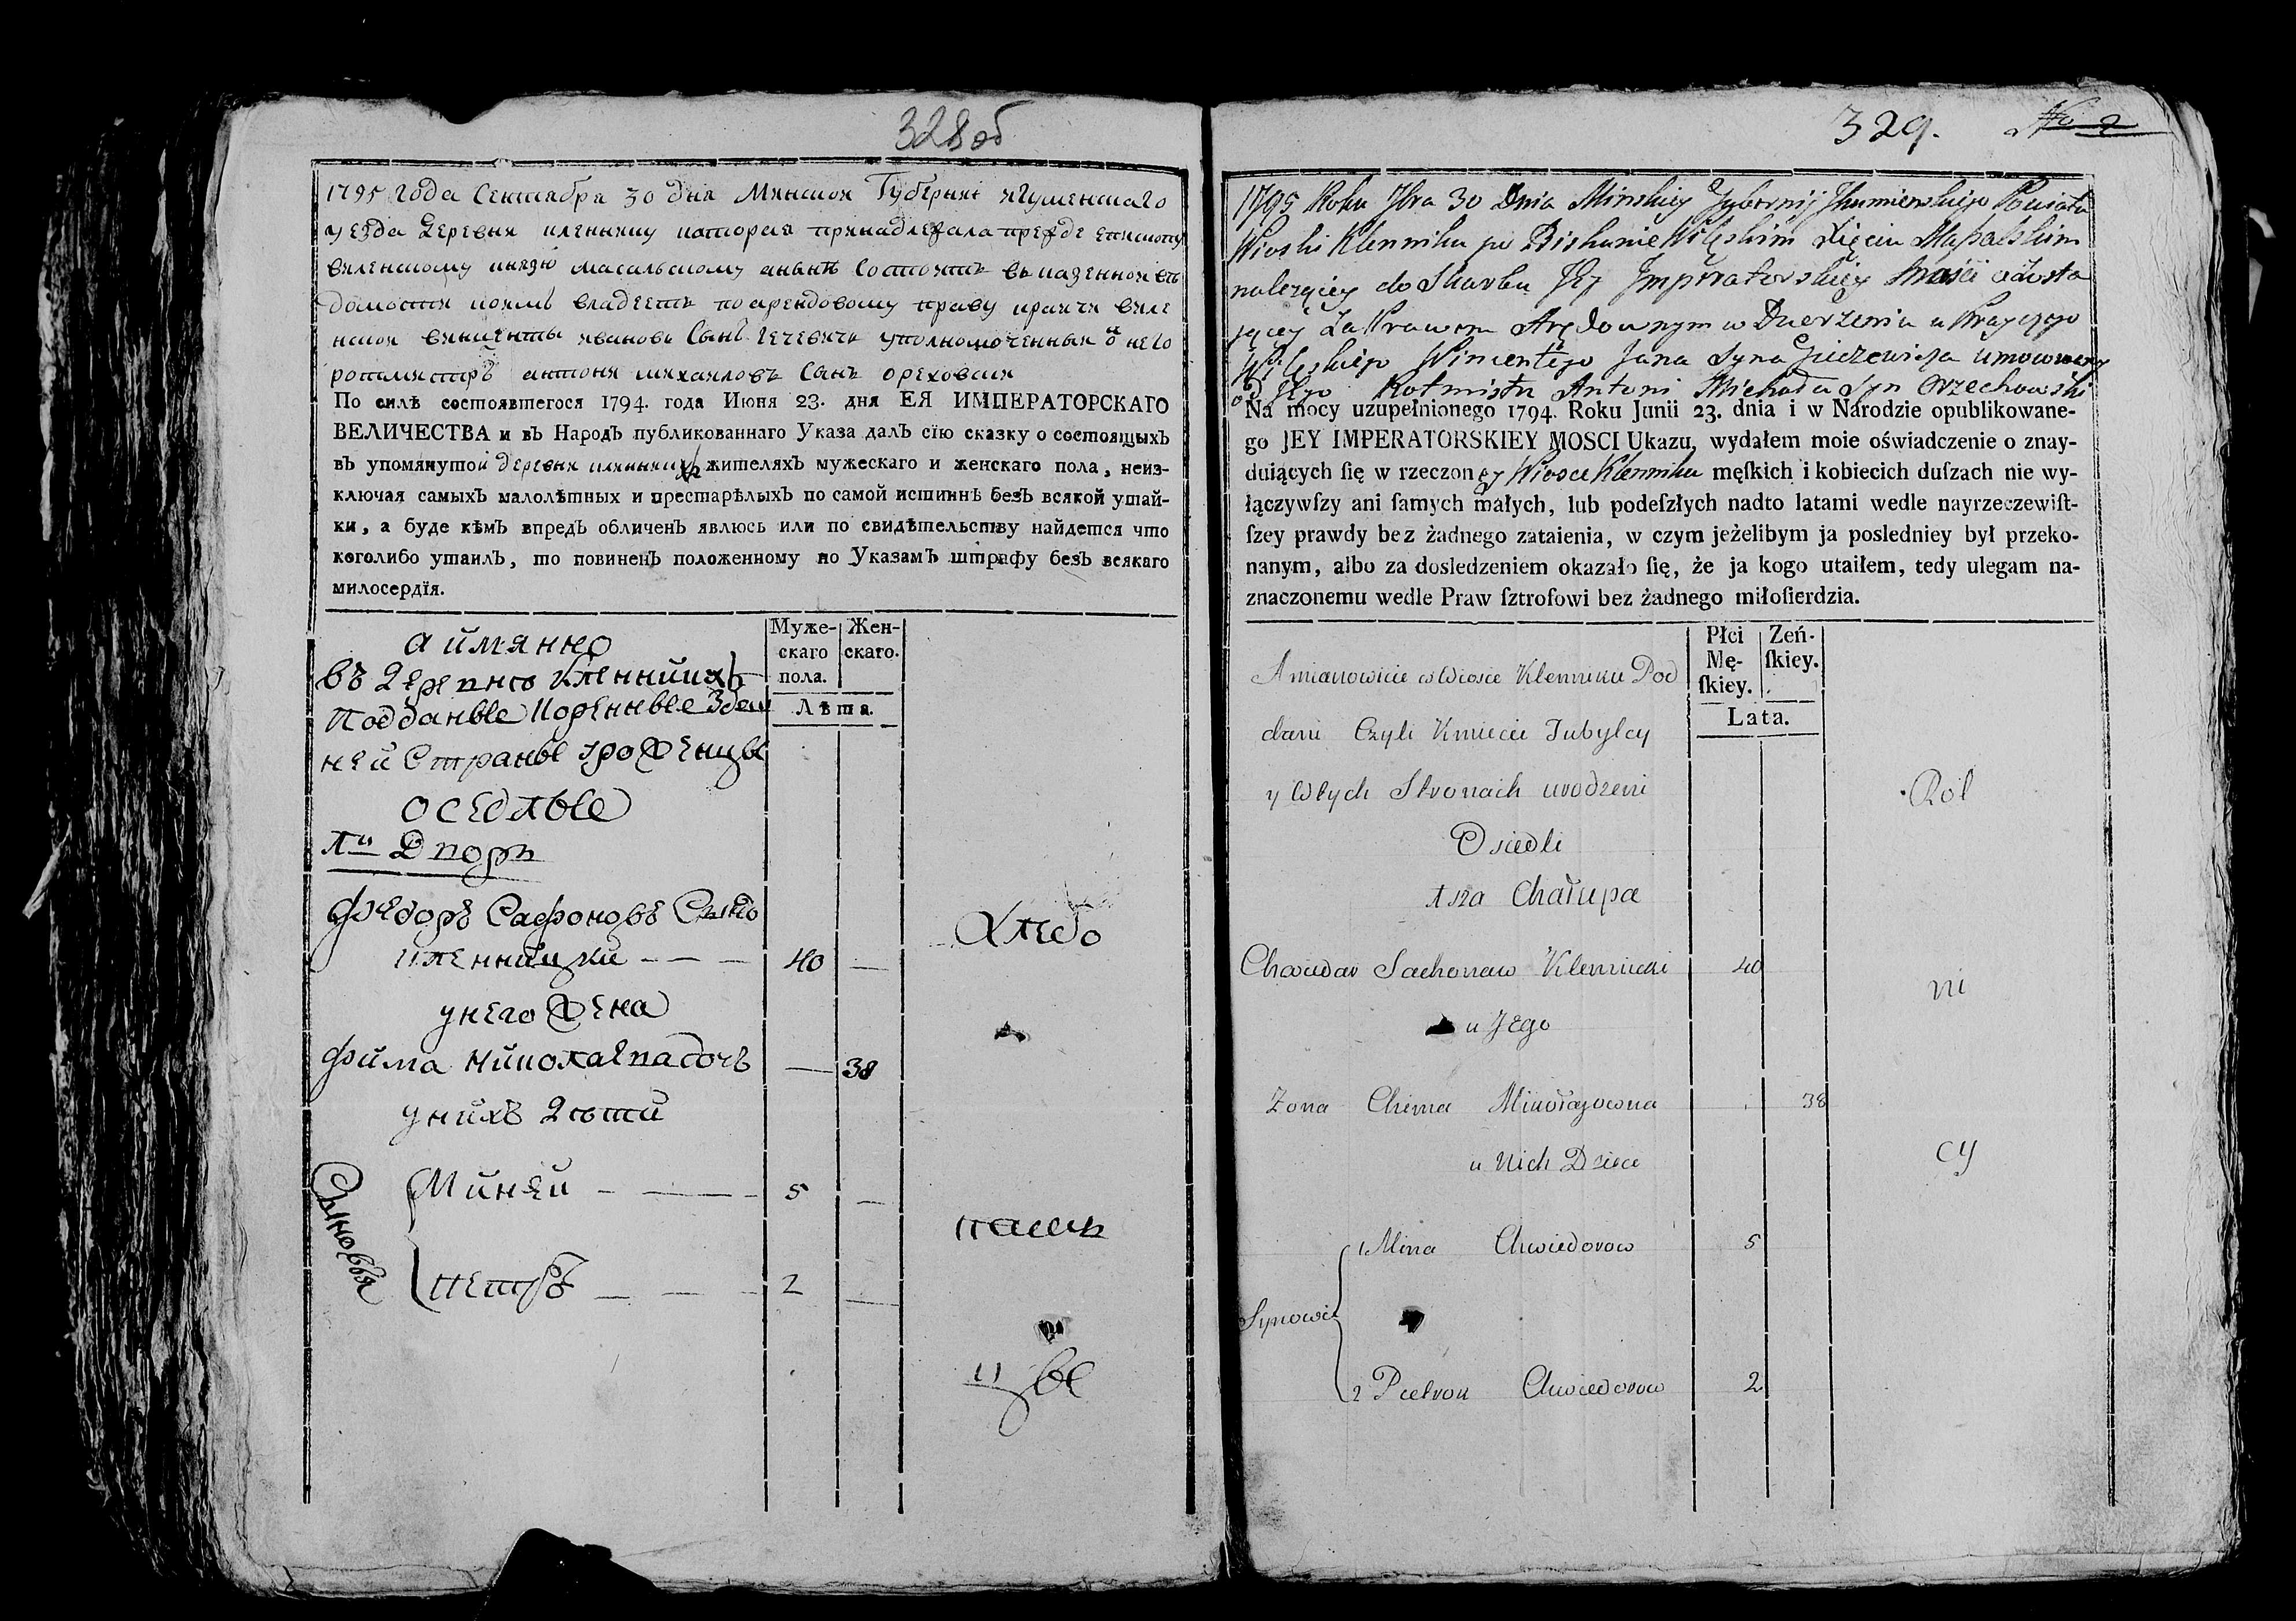 328об
1795 года Сентября 30 дня Минской Губернии игуменскаго
уезда Деревни кленнику которая принадлежала прежде епископу
виленскому князю масальскому аныне состоитъ в казенной ве
домости коямъ владеетъ по арендовому праву крайчи виле
нской винценты иванова Сынъ гечевичъ уполномоченный о него
ротмистръ антони михайловъ Сынъ ореховски
По силѣ состоявшегося 1794. года Июня 23. дня ЕЯ ИМПЕРАТОРСКАГО
ВЕЛИЧЕСТВА и въ Народъ публикованнаго Указа далъ сїю сказку о состоящыхъ
въ упомянутой деревни кленникахъ жителяхъ мужескаго и женскаго пола, неиз-
ключая самыхъ малолѣтных и престарѣлыхъ по самой истиннѣ безъ всякой утай-
ки, а буде кѣмъ впредъ обличенъ явлюсь или по свидѣтельству найдется что
коголибо утаилъ, то повиненъ положенному по Указамъ штрафу безъ всякаго
милосердїя.
Муже-
скаго
пола.
Жен-
скаго.
Лѣта.
аимянно
въ Деревне Кленникахъ
Подданые Кореные Здеш
ней Страны уроженцы
оседлые
1й Дворъ
Фѣдоръ Сафоновъ Сынъ
кленницки 40
унего Жена
Фима николаева дочь 38
унихъ 2 ѣти
Сыновья
Миней 5
петръ 2
Хлебо
паш
цы
329.
No 2
1795 Roku 7bra 30 Dnia Minskiey Gubernij Jhumienskiego Powiatu
Wioski Klenniku po Biskupie Wileskim Xięciu Massalskim
należącey do Skarbu Jey Jmperatorskiey Mości a Zosta
jącey Za Prawem Arędownym w Dzierżeniu u Krayczego
Wileskiego Wincentego Jana Syna Gieczewicza umocowany
od Jego Rotmistrz Antoni Michała Syn Orzechowski
Na mocy uzupełnionego 1794. Roku Junii 23. dnia i w Narodzie opublikowane-
go JEY IMPERATORSKIEY MOSCI Ukazu, wydałem moie oświadczenie o znay-
duiących ſię w rzeczoney Wiosce Klenniku męſkich i kobiecich duſzach nie wy-
łączywſzy ani ſamych małych, lub podeſzłych nadto latami wedle nayrzeczewiſt-
ſzey prawdy bez żadnego zataienia, w czym jeżelibym ja posledniey był przeko-
nanym, albo za dosledzeniem okazało ſię, że ja kogo utaiłem, tedy ulegam na-
znaczonemu wedle Praw ſztrofowi bez żadnego miłoſierdzia.
Płci
Mę-
ſkiey.
Zeń-
ſkiey.
Lata.
Amianowicie w Wiosce Klenniku Pod
dani Czyli Kmiecie Tubylcy
y W tych Stronach urodzeni
Osiedli
1sza Chałupa
Chwiedar Sachonaw Klennicki 40
u Jego
Zona Chima Mikołajowna 38
u Nich Dzieci
Synowie
1 Mina Chwiedorow 5
2 Pietrok Chwiedorow 2
Rol
ni
cy